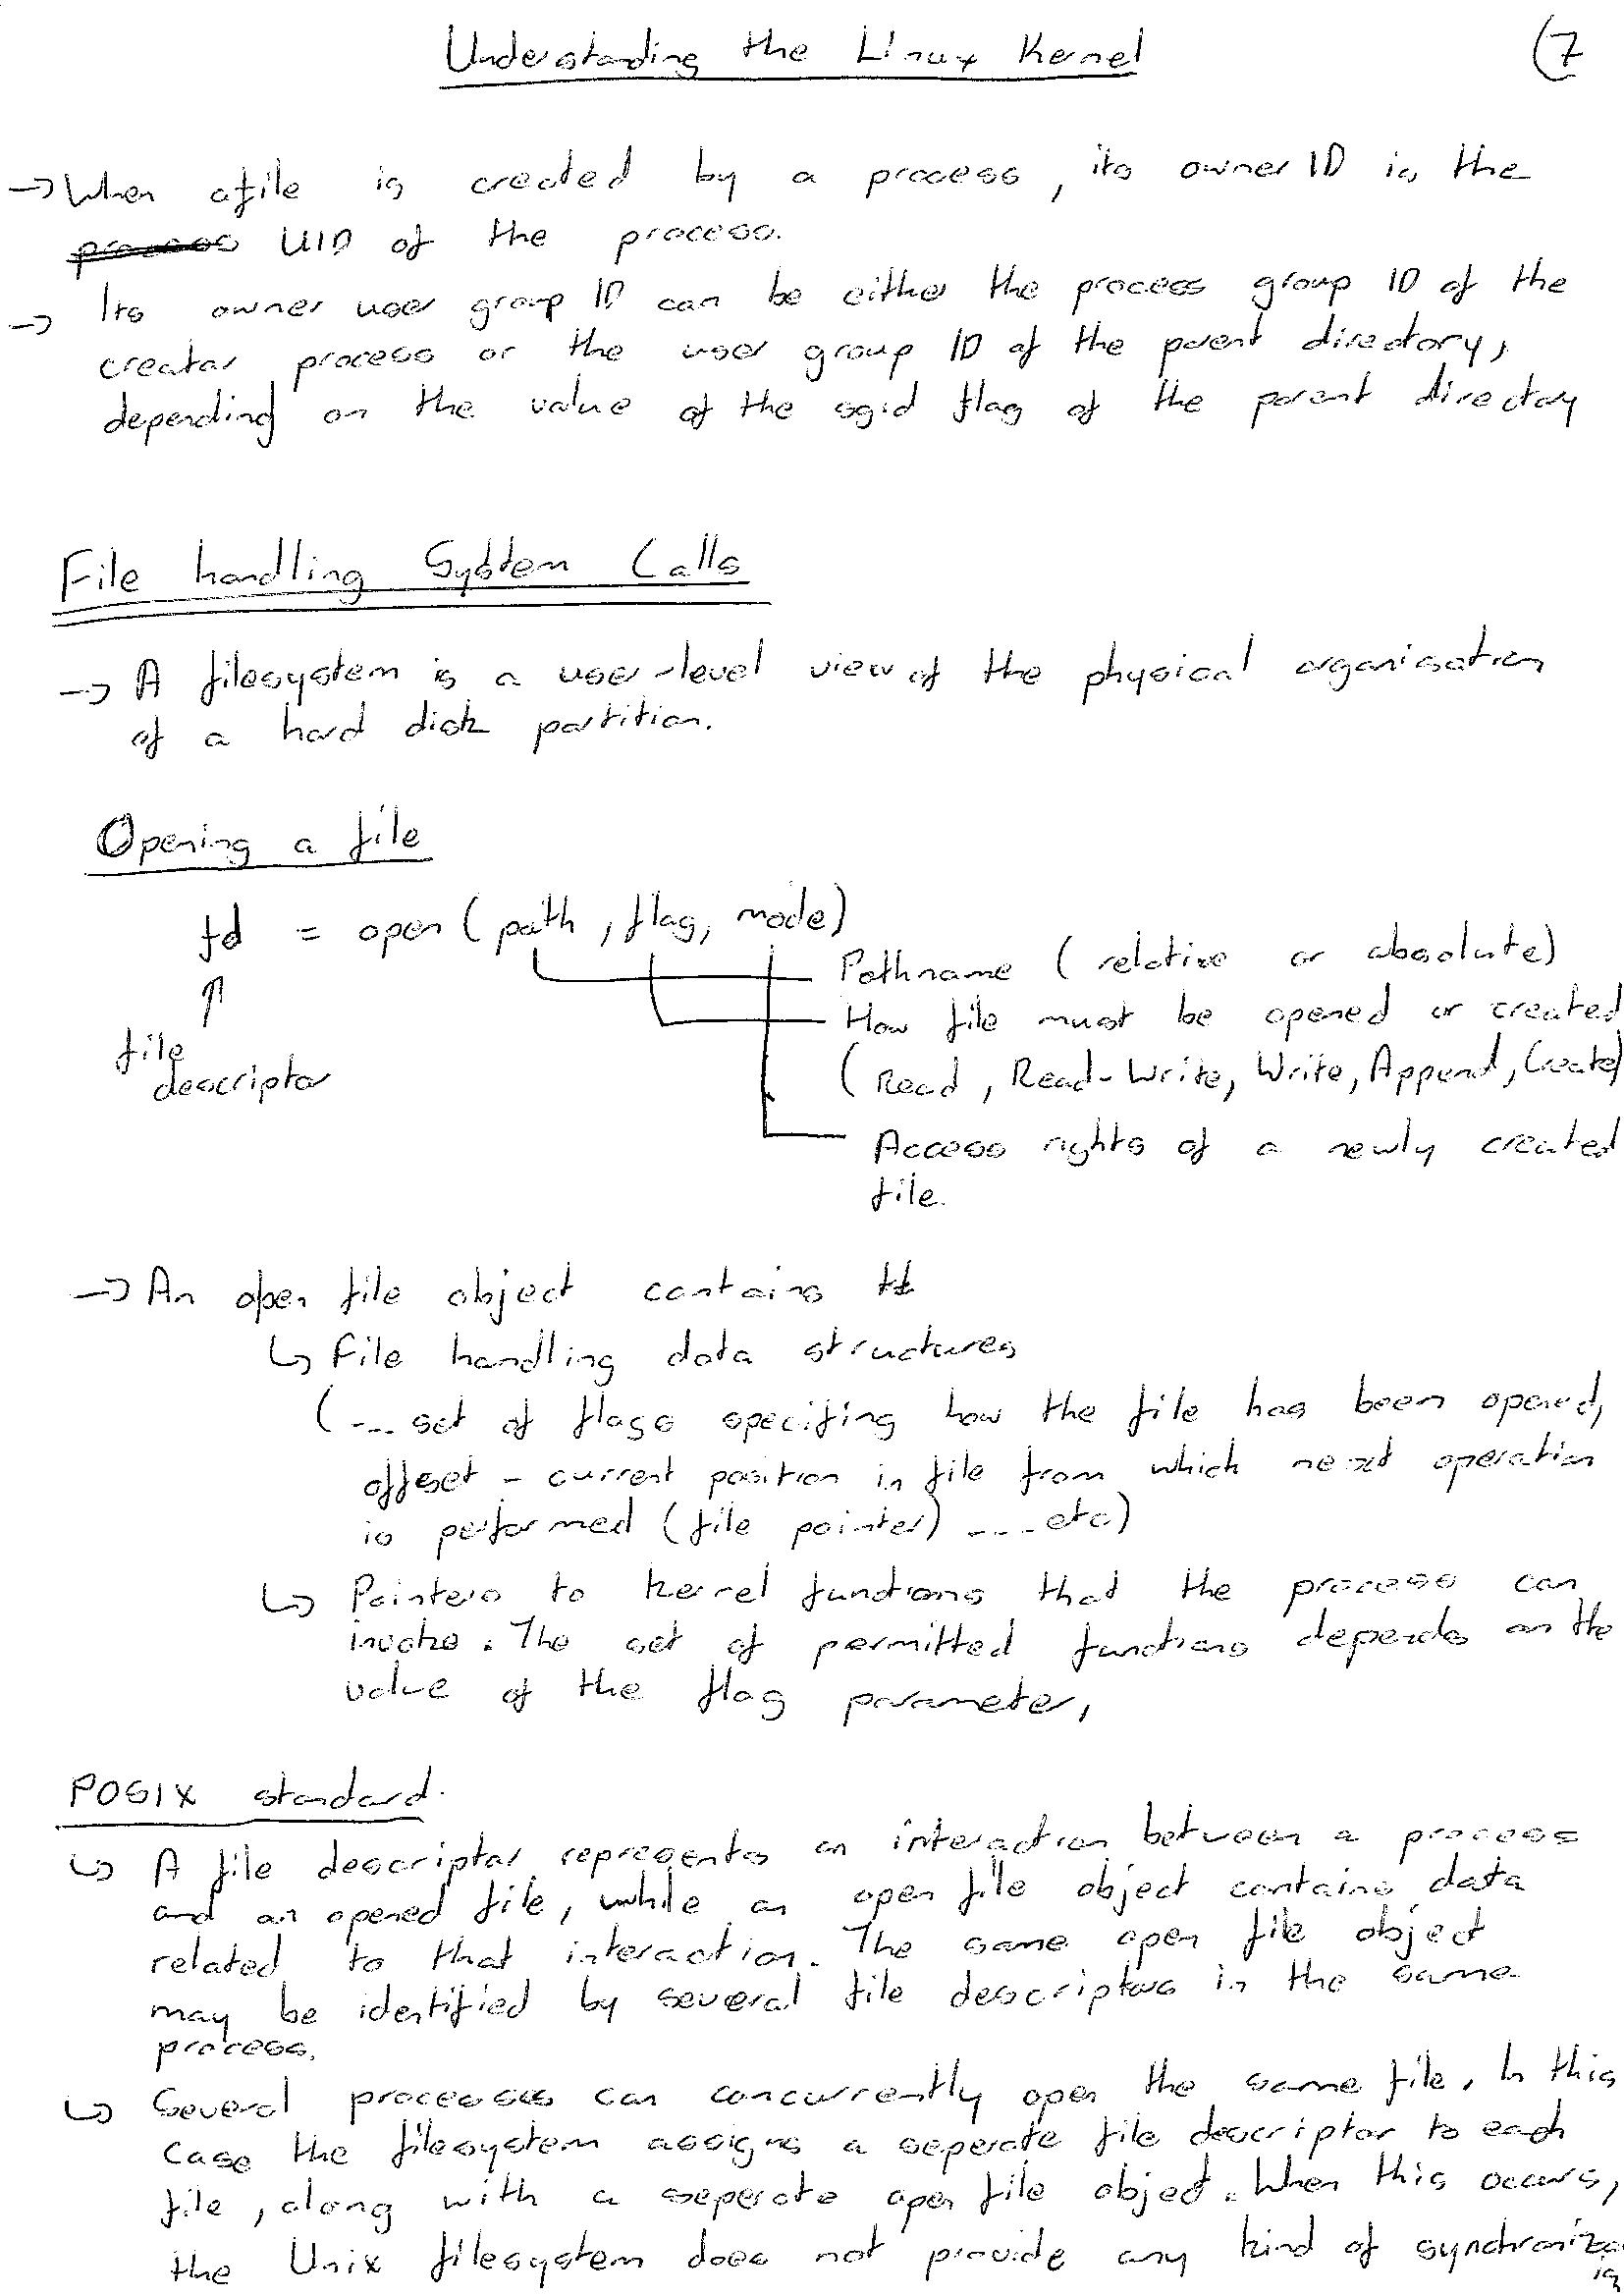 Understanding the Linux Kernel
(7
→ When a file is created by a process, its owner ID is the
process UID of the process.
→ Its owner user group ID can be either the process group ID of the
creator process or the user group ID of the parent directory,
depending on the value of the sgid flag of the parent directory
File handling System Calls
→ A filesystem is a user-level view of the physical organisation
of a hard disk partition.
Opening a file
fd = open (path, flag, mode)
Pathname (relative or absolute)
How file must be opened or created
(Read, Read-Write, Write, Append, Create)
Access rights of a newly created
file.
↑
file
descriptor
→ An open file object contains
↳ File handling data structures
(... set of flags specifing how the file has been opened,
offset - current position in file from which next operation
is performed (file pointer) ... etc)
↳ Pointers to kernel functions that the process can
invoke. The set of permitted functions depends on the
value of the flag parameter,
POSIX standard.
↳ A file descriptor represents an interaction between a process
and an opened file, while an open file object contains data
related to that interaction. The same open file object
may be identified by several file descriptors in the same
process.
↳ Several processes can concurrently open the same file. In this
case the filesystem assigns a seperate file descriptor to each
file, along with a seperate open file object. When this occurs,
the Unix filesystem does not provide any kind of synchroniza